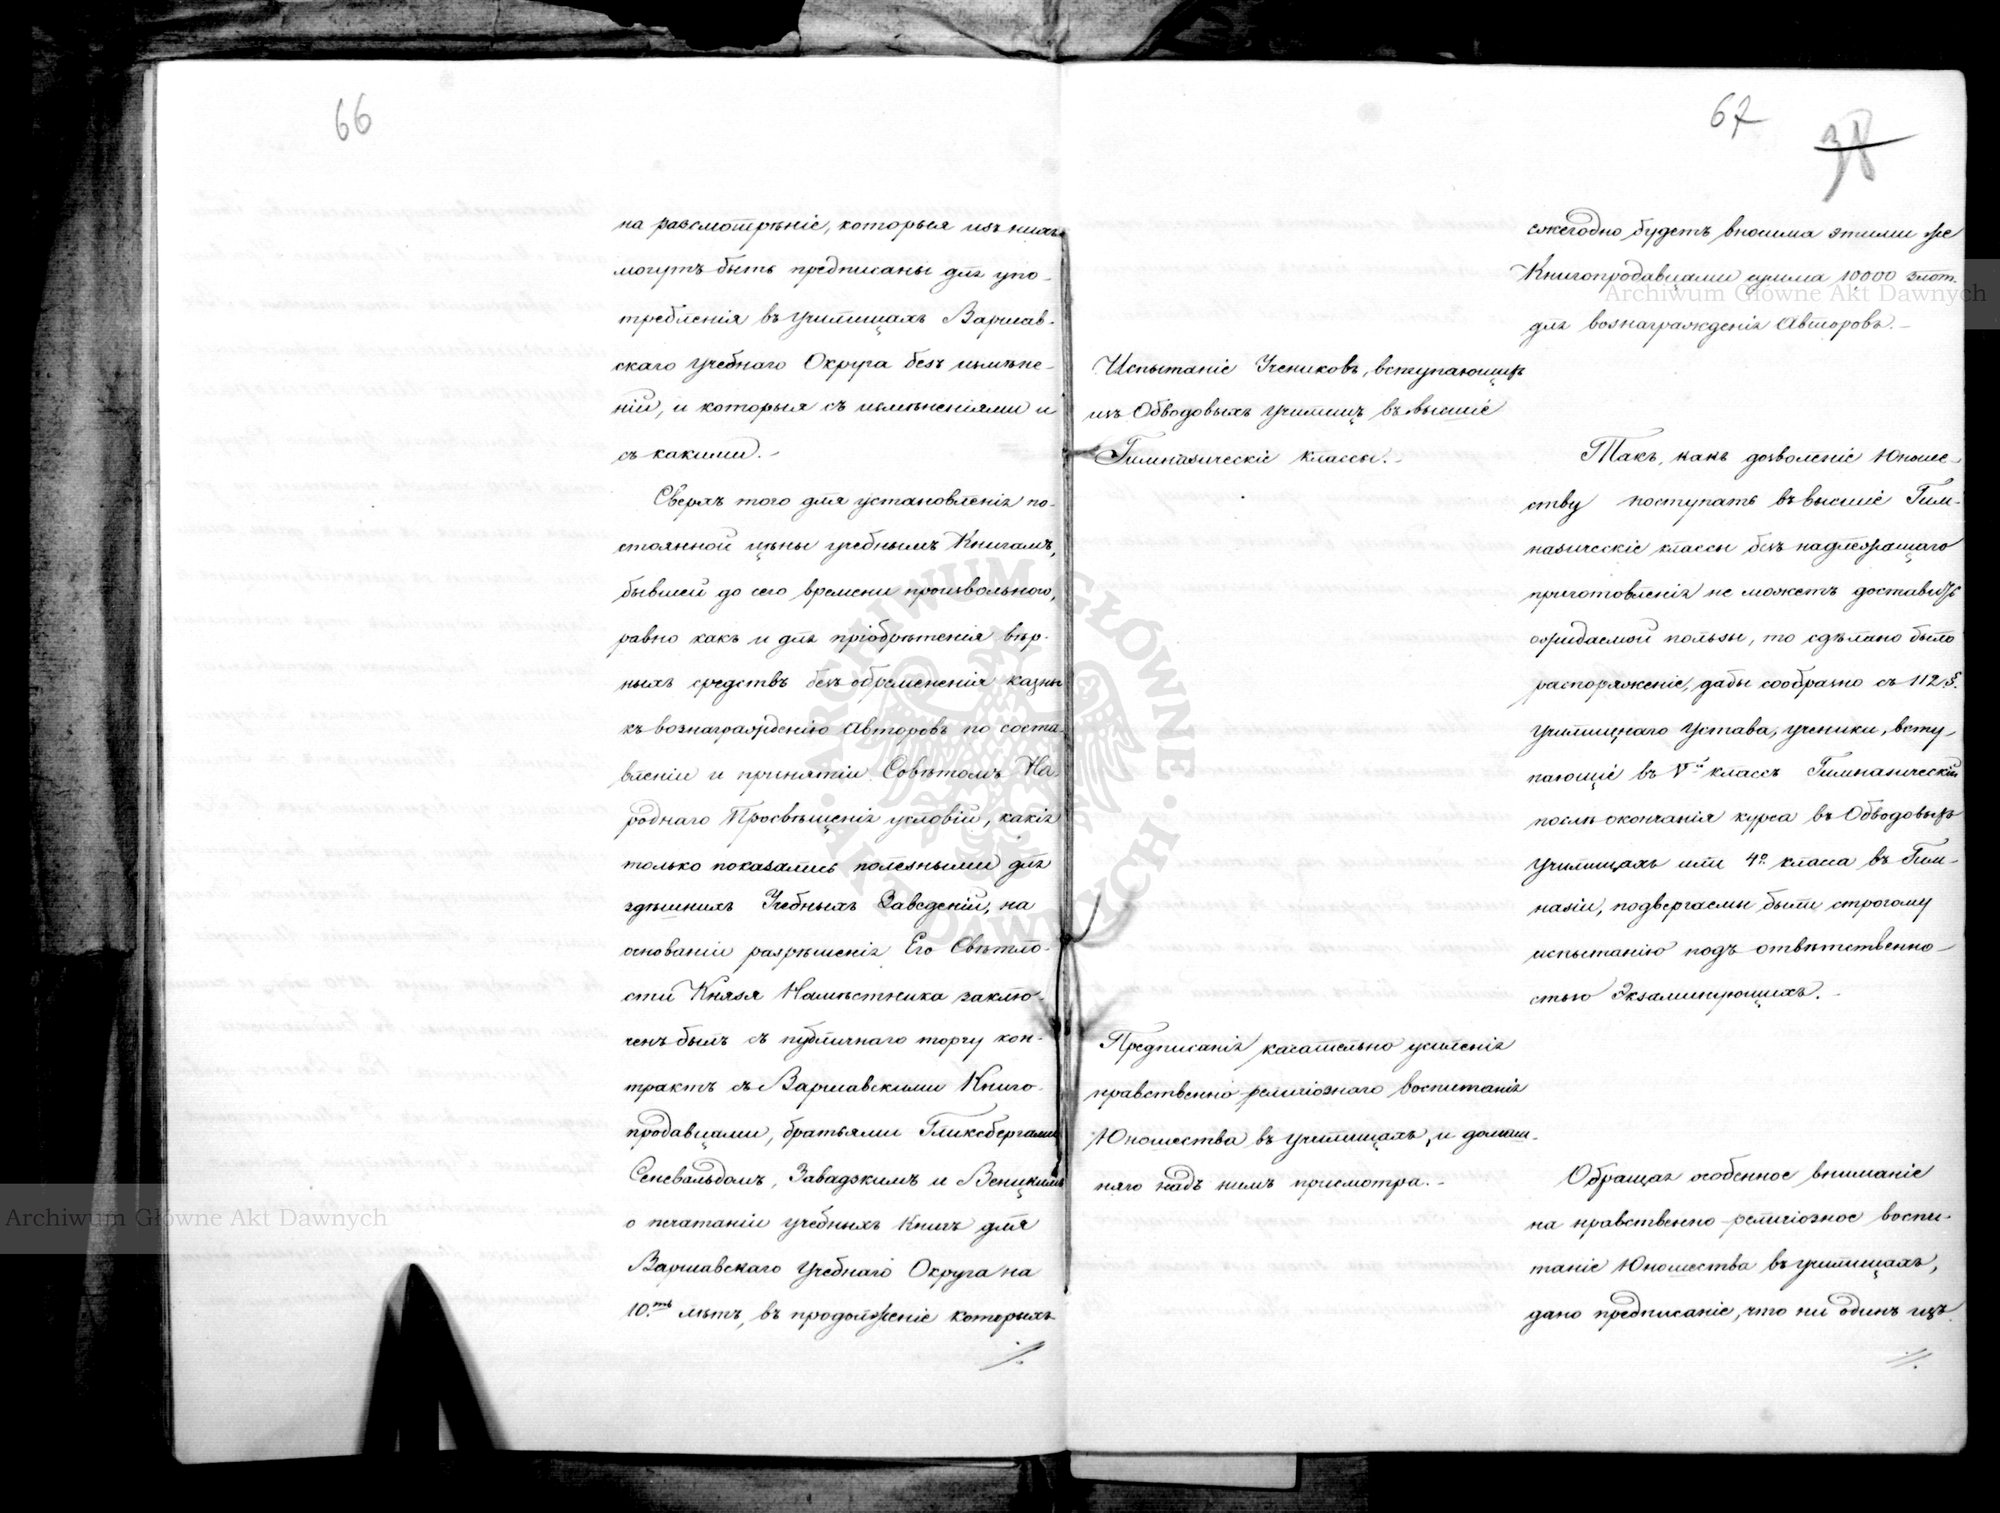 66
на разсмотрѣніе, которыя изъ нихъ
могутъ быть предписаны для упо-
требленія въ Училищахъ Варшав-
скаго Учебнаго Округа безъ измѣне-
ній, и которыя съ измѣненіями и
съ какими.-
Сверхъ того для установленія по-
стоянной цѣны учебнымъ Книгамъ,
бывшей до сего времени произвольною,
равно какъ и для пріобрѣтенія вѣр-
ныхъ средствъ безъ обремененія казны
къ вознагражденію Авторовъ по соста-
вленіи и принятіи Совѣтомъ На-
роднаго Просвѣщенія условій, какія
только показались полезными для
здѣшнихъ Учебныхъ Заведеній, на
основаніи разрѣшенія Его Свѣтло-
сти Князя Намѣстника заклю-
ченъ былъ съ публичнаго торгу кон-
трактъ съ Варшавскими Книго-
продавцами, братьями Гликсбергами
Сеневальдомъ, Завадзкимъ и Венцкимъ
о печатаніи учебныхъ Книгъ для
Варшавскаго Учебнаго Округа на
10.ть лѣтъ, въ продолженіе которыхъ
67
38
ежегодно будетъ вносима этими же
Книгопродавцами сумма 10000 злот.
для вознагражденія Авторовъ.-
Испытаніе Учениковъ, вступающихъ
изъ Обводовыхъ Училищъ въ высшіе
Гимназическіе классы.-
Такъ, какъ дозволеніе Юноше-
ству поступать въ высшіе Гим-
назическіе классы безъ надлежащаго
приготовленія не можетъ доставить
ожидаемой пользы, то сдѣлано было
распоряженіе, дабы сообразно съ 112.§.
Училищнаго Устава, ученики, всту-
пающіе въ V-й классъ Гимназическій
послѣ окончанія курса въ Обводовыхъ
Училищахъ или 4о класса въ Гим-
назіи, подвергаемы были строгому
испытанію подъ отвѣтственно-
стью Экзаминующихъ.-
Предписанія касательно усиленія
нравственно-религіознаго воспитанія
Юношества въ Училищахъ, и домаш-
няго надъ нимъ присмотра.-
Обращая особенное вниманіе
на нравственно-религіозное воспи-
таніе Юношества въ училищахъ,
дано предписаніе, что ни одинъ изъ
Archiwum Główne Akt Dawnych
Archiwum Główne Akt Dawnych
ARCHIWUM GŁÓWNE AKT DAWNYCH